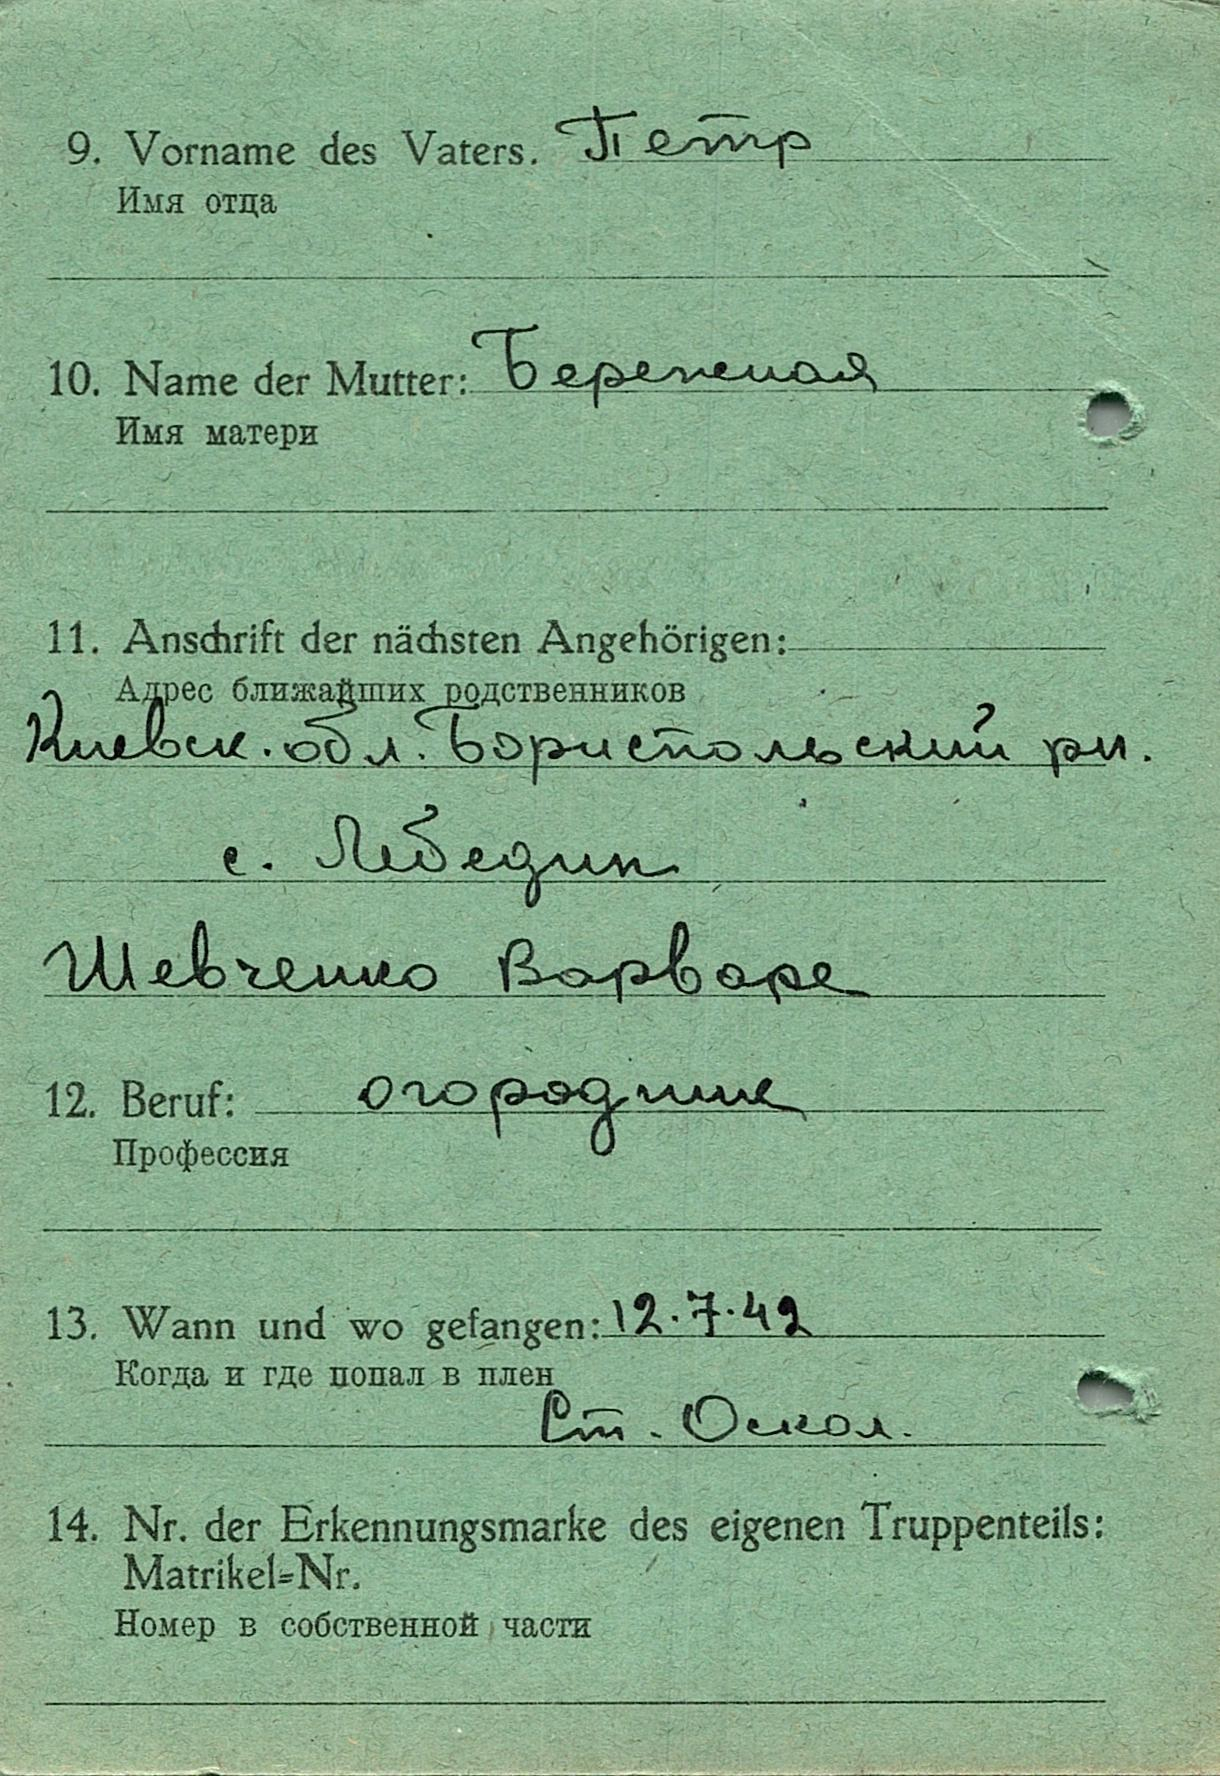 9. Vorname des Vaters. Петр
Имя отца
10. Name der Mutter: Бережная
Имя матери
11. Anschrift der nächsten Angehörigen:
Адрес ближайших родственников
Киевск. обл. Бориспольский рн.
с. Лебедин
Шевченко Варваре
12. Beruf: огородник
Профессия
13. Wann und wo gefangen: 12.7.42
Когда и где попал в плен
Ст. Оскол.
14. Nr. der Erkennungsmarke des eigenen Truppenteils:
Matrikel=Nr.
Номер в собственной части